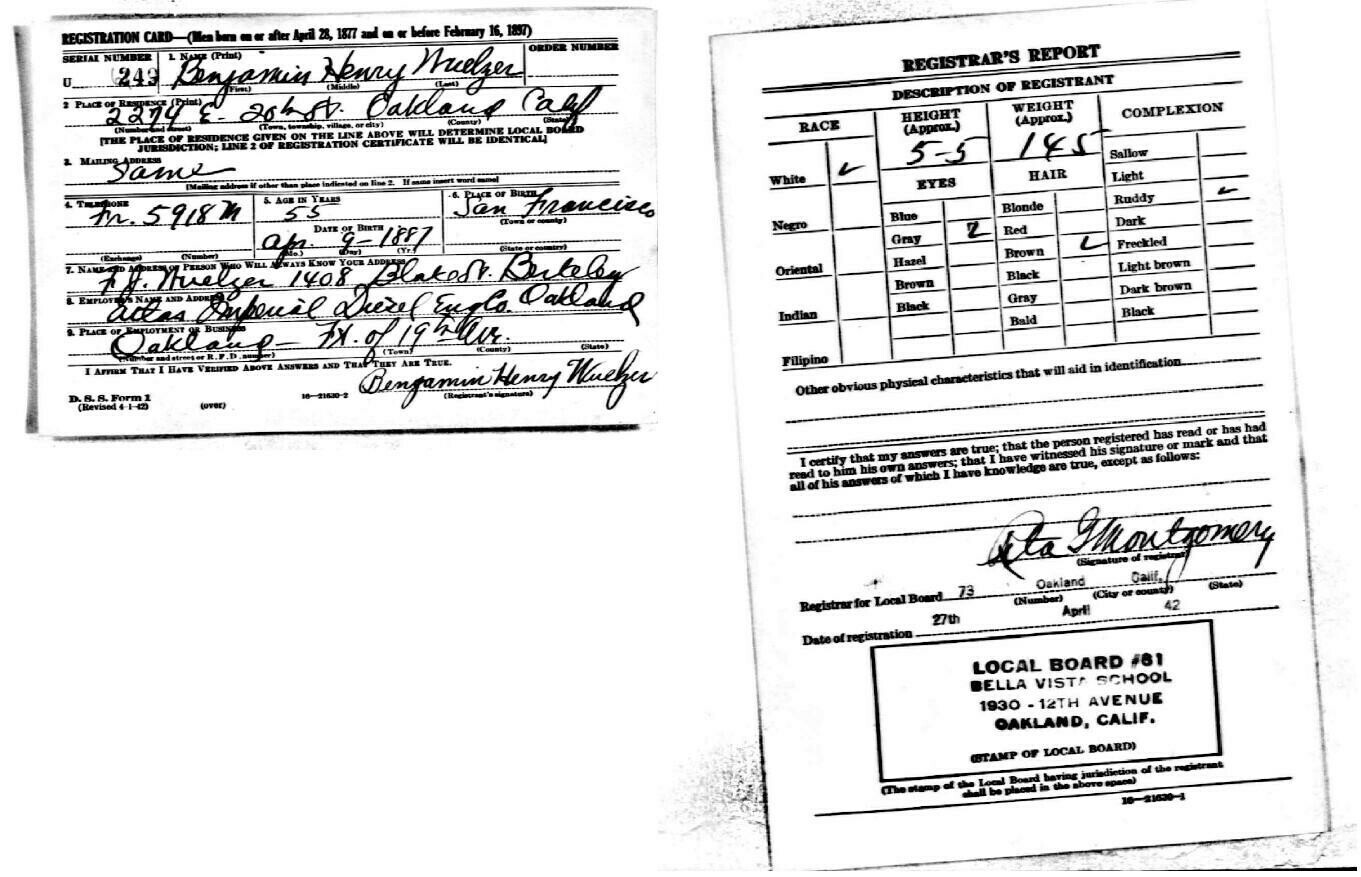 REGISTRATION CARD—(Men born on or after April 28, 1877 and on or before February 16, 1897)
SERIAL NUMBER 1. NAME (Print) ORDER NUMBER
U 243 Benjamin Henry Wuelzer
(First) (Middle) (Last)
2 PLACE OF RESIDENCE (Print)
2274 E- 20th St. Oakland Calif
(Number and street) (Town, township, village, or city) (County) (State)
[THE PLACE OF RESIDENCE GIVEN ON THE LINE ABOVE WILL DETERMINE LOCAL BOARD
JURISDICTION; LINE 2 OF REGISTRATION CERTIFICATE WILL BE IDENTICAL]
3. MAILING ADDRESS
Same
[Mailing address if other than place indicated on line 2. If same insert word same]
4. TELEPHONE 5. AGE IN YEARS 6. PLACE OF BIRTH
Fr. 5918 M 55 San Francisco
DATE OF BIRTH (Town or county)
Apr. 9-1887
(Exchange) (Number) (Mo.) (Day) (Yr.) (State or country)
7. NAME AND ADDRESS OF PERSON WHO WILL ALWAYS KNOW YOUR ADDRESS
F.J. Wuelzer 1408 Blake St. Berkeley
8. EMPLOYER'S NAME AND ADDRESS
Atlas Imperial Diesel Eng Co. Oakland
9. PLACE OF EMPLOYMENT OR BUSINESS
Oakland— Ft. of 19th Ave.
(Number and street or R. F. D. number) (Town) (County) (State)
I AFFIRM THAT I HAVE VERIFIED ABOVE ANSWERS AND THAT THEY ARE TRUE.
Benjamin Henry Wuelzer
D. S. S. Form 1 16—21630-2 (Registrant's signature)
(Revised 4-1-42) (over)
REGISTRAR'S REPORT
DESCRIPTION OF REGISTRANT
RACE HEIGHT (Approx.) WEIGHT (Approx.) COMPLEXION
5-5 145
White ✓ EYES HAIR Sallow
Light
Negro Blue Blonde Ruddy ✓
Gray Red Dark
Oriental Hazel Brown ✓ Freckled
Brown Black Light brown
Indian Black Gray Dark brown
Bald Black
Filipino
Other obvious physical characteristics that will aid in identification
I certify that my answers are true; that the person registered has read or has had
read to him his own answers; that I have witnessed his signature or mark and that
all of his answers of which I have knowledge are true, except as follows:
Rita G Montgomery
(Signature of registrar)
Registrar for Local Board 73 Oakland Calif.
(Number) (City or county) (State)
Date of registration 27th April 42
LOCAL BOARD #81
BELLA VISTA SCHOOL
1930 - 12TH AVENUE
OAKLAND, CALIF.
(STAMP OF LOCAL BOARD)
(The stamp of the Local Board having jurisdiction of the registrant
shall be placed in the above space)
16—21630-1